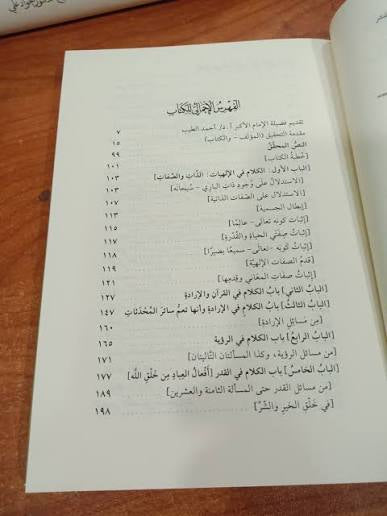 الفهرس الإجمالي للكتاب
تقديم فضيلة الإمام الأكبر أ. د/ أحمد الطيب ٧
مقدمة التحقيق (المؤلف - والكتاب) ١٥
النص المحقق ٩٩
[خطبة الكتاب] ١٠١
[الباب الأول: الكلام في الإلهيات: الذَّات والصِّفات] ١٠٣
[الاستدلال على وجودِ ذاتِ الباري - سُبحانه] ١٠٣
[الاستدلال على الصفات الذاتية] ١٠٧
[إبطال الجسمية] ١١٣
[إثبات كونه تعالى- عالِمًا] ١١٥
[إثبات صِفَتي الحياةِ والقُدْرةِ] ١١٧
[إثباتُ كونه -تعالى- سميعًا بصيرًا] ١١٨
[قِدمُ الصفات الإلهيَّة] ١١٩
[إثبات صفاتِ المعاني وقِدمها] ١٢١
[البابُ الثاني] بابُ الكلام في القرآن والإرادةِ ١٢٧
[البابُ الثالثُ] بابُ الكلام في الإرادةِ وأنها تعمُّ سائرَ المُحْدَثاتِ ١٤٧
[مِن مسائِلِ الإرادةِ] ١٦٠
[البابُ الرابعُ] باب الكلام في الرؤية ١٦٥
[من مسائل الرؤية، وكذا المسألتان التَّاليتان] ١٧١
[البابُ الخامسُ] باب الكلام في القدر [أَفْعالُ العبادِ مِن خَلْقِ الله] ١٧٧
[من مسائل القدر حتى المسألة الثامنة والعشرين] ١٨٩
[في خَلْقِ الخيرِ والشَّرِّ] ١٩٨